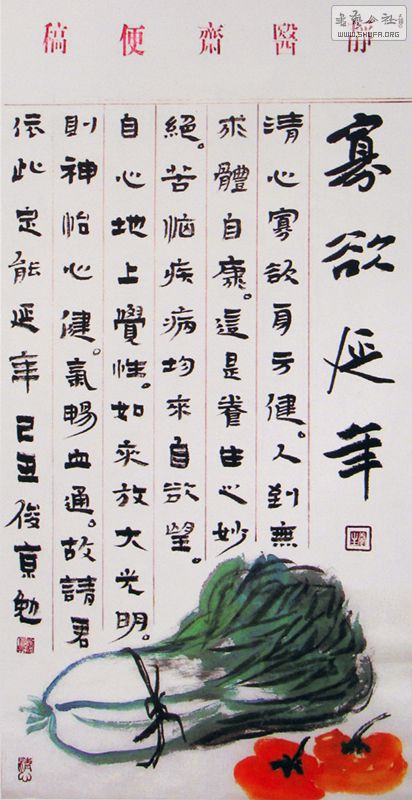 書藝公社
WWW.SHUFA.ORG
靜醫齋便稿
寡欲延年
清心寡欲身方健。人到無
求體自康。這是養生心妙
絕。苦惱疾病均來自欲望。
自心地上覺性。如來放大光明。
則神怡心健。氣暢血通。故請君
依此定能延年己丑俊京勉